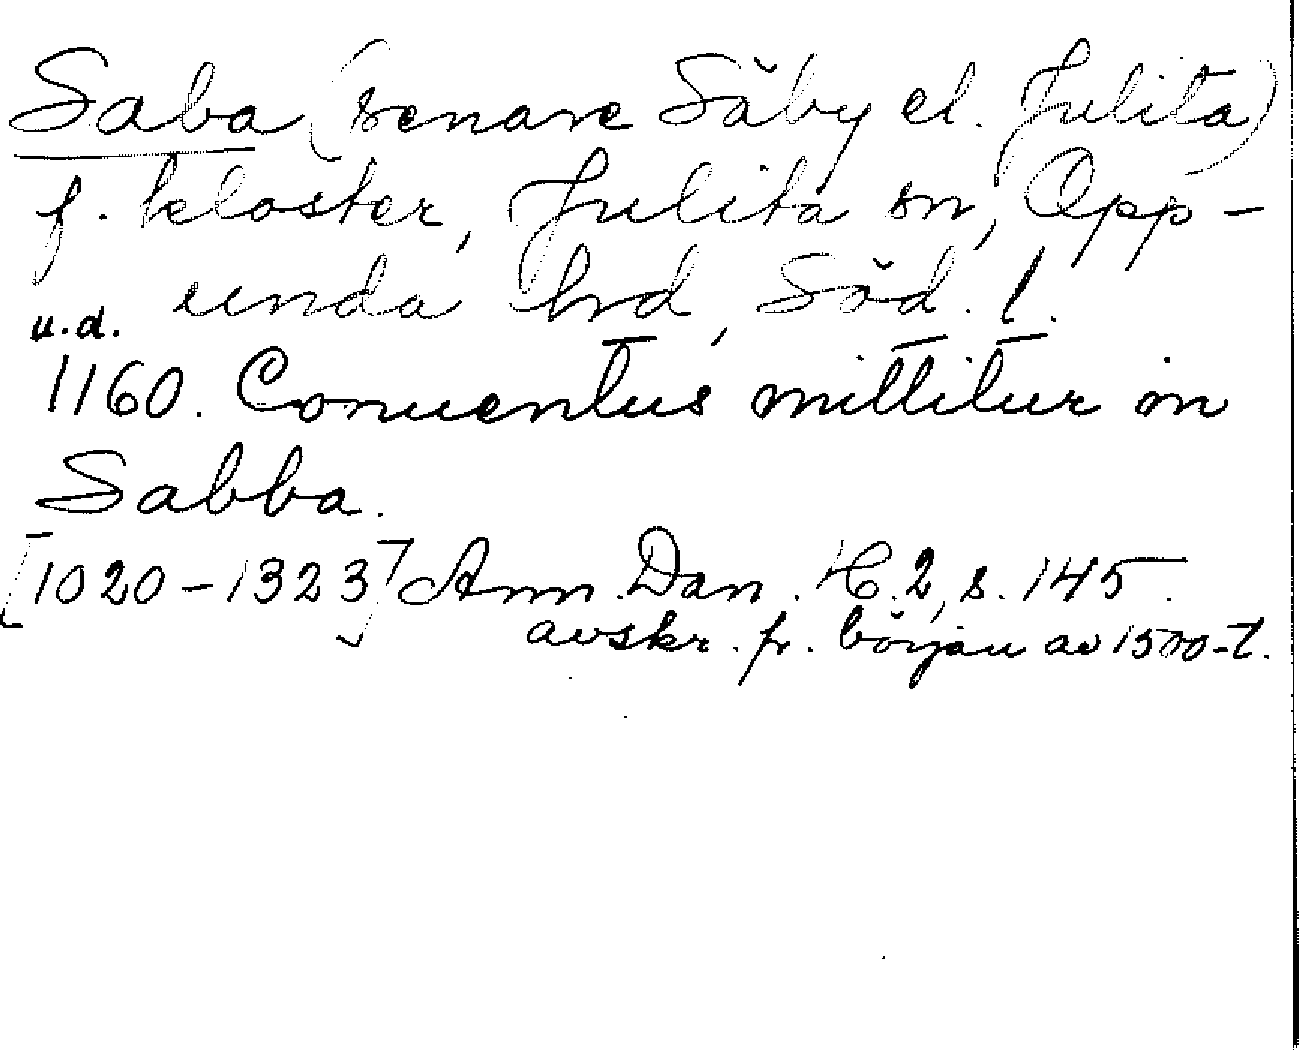 Saba (senare Säby el. Julita)
f. kloster, Julita sn, Opp-
unda hrd, Söd. l.
u.d.
1160. Conuentus mittitur in
Sabba.
[1020-1323] Ann. Dan. H. 2, s. 145.
avskr. fr. början av 1500-t.